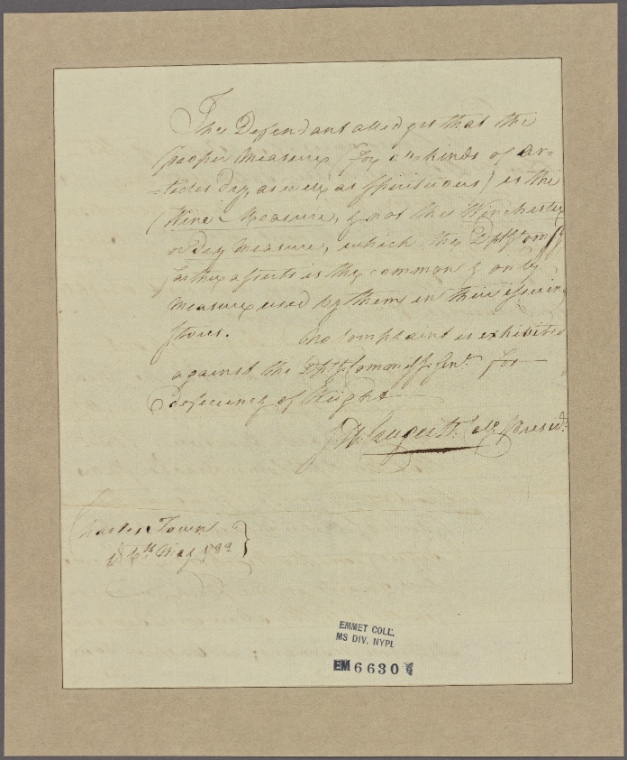 The Defendant alledges that the
proper Measure for all kinds of ar-
=ticles dry, as well as spirituous) is the
(Wine Measure, & not the Winchester
or dry Measure, which the
farther asserts is the common & only
Measure used by them in their issuing
stores. No Complaint is exhibited
against the for
deficiency of Weight
Presid.t
Charles Town
May
EMMET COLL.
MS DIV. NYPL
EM 6630